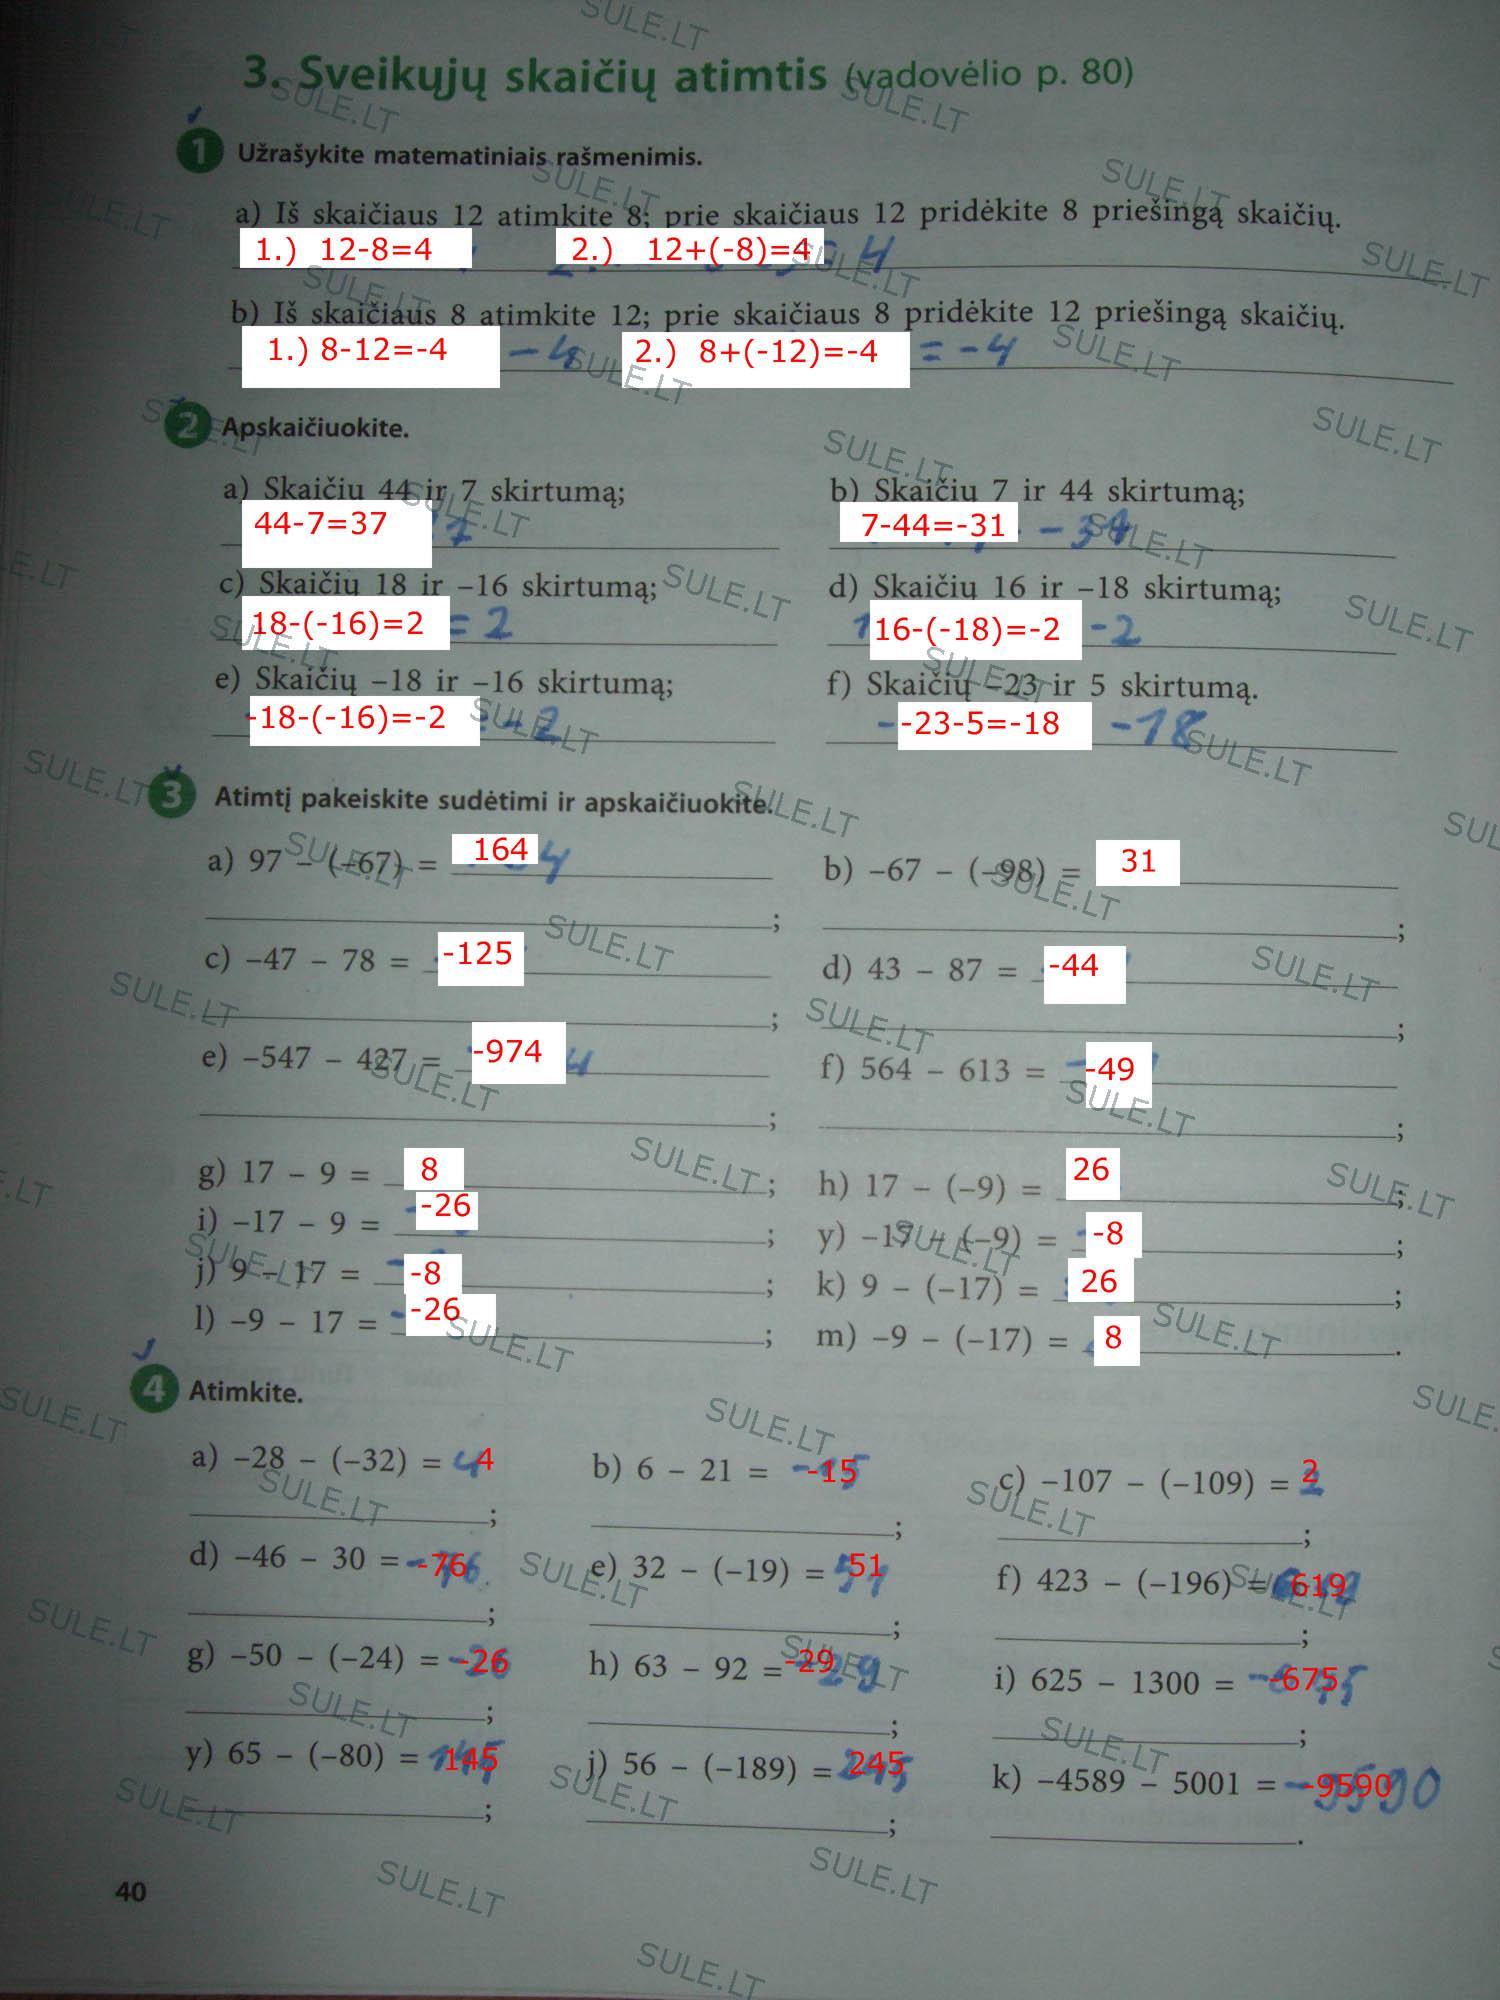 3. Sveikųjų skaičių atimtis (vadovėlio p. 80)
1 Užrašykite matematiniais rašmenimis.
a) Iš skaičiaus 12 atimkite 8; prie skaičiaus 12 pridėkite 8 priešingą skaičių.
1.) 12-8=4 2.) 12+(-8)=4 4
b) Iš skaičiaus 8 atimkite 12; prie skaičiaus 8 pridėkite 12 priešingą skaičių.
1.) 8-12=-4 -4 2.) 8+(-12)=-4 = -4
2 Apskaičiuokite.
a) Skaičių 44 ir 7 skirtumą; b) Skaičių 7 ir 44 skirtumą;
44-7=37 7 7-44=-31 -31
c) Skaičių 18 ir –16 skirtumą; d) Skaičių 16 ir –18 skirtumą;
18-(-16)=2 = 2 16-(-18)=-2 -2
e) Skaičių –18 ir –16 skirtumą; f) Skaičių –23 ir 5 skirtumą.
-18-(-16)=-2 -2 -23-5=-18 -18
3 Atimtį pakeiskite sudėtimi ir apskaičiuokite.
a) 97 – (–67) = 164 4 b) –67 – (–98) = 31
; ;
c) –47 – 78 = -125 d) 43 – 87 = -44
; ;
e) –547 – 427 = -974 4 f) 564 – 613 = -49
; ;
g) 17 – 9 = 8 ; h) 17 – (–9) = 26 ;
i) –17 – 9 = -26 ; y) –17 – (–9) = -8 ;
j) 9 – 17 = -8 ; k) 9 – (–17) = 26 ;
l) –9 – 17 = -26 ; m) –9 – (–17) = 8 .
4 Atimkite.
a) –28 – (–32) = 4 b) 6 – 21 = -15 c) –107 – (–109) = 2
; ; ;
d) –46 – 30 = -76 e) 32 – (–19) = 51 f) 423 – (–196) = 619
; ; ;
g) –50 – (–24) = -26 h) 63 – 92 = -29 i) 625 – 1300 = -675
; ; ;
y) 65 – (–80) = 145 j) 56 – (–189) = 245 k) –4589 – 5001 = -9590
; ; .
40
SULE.LT